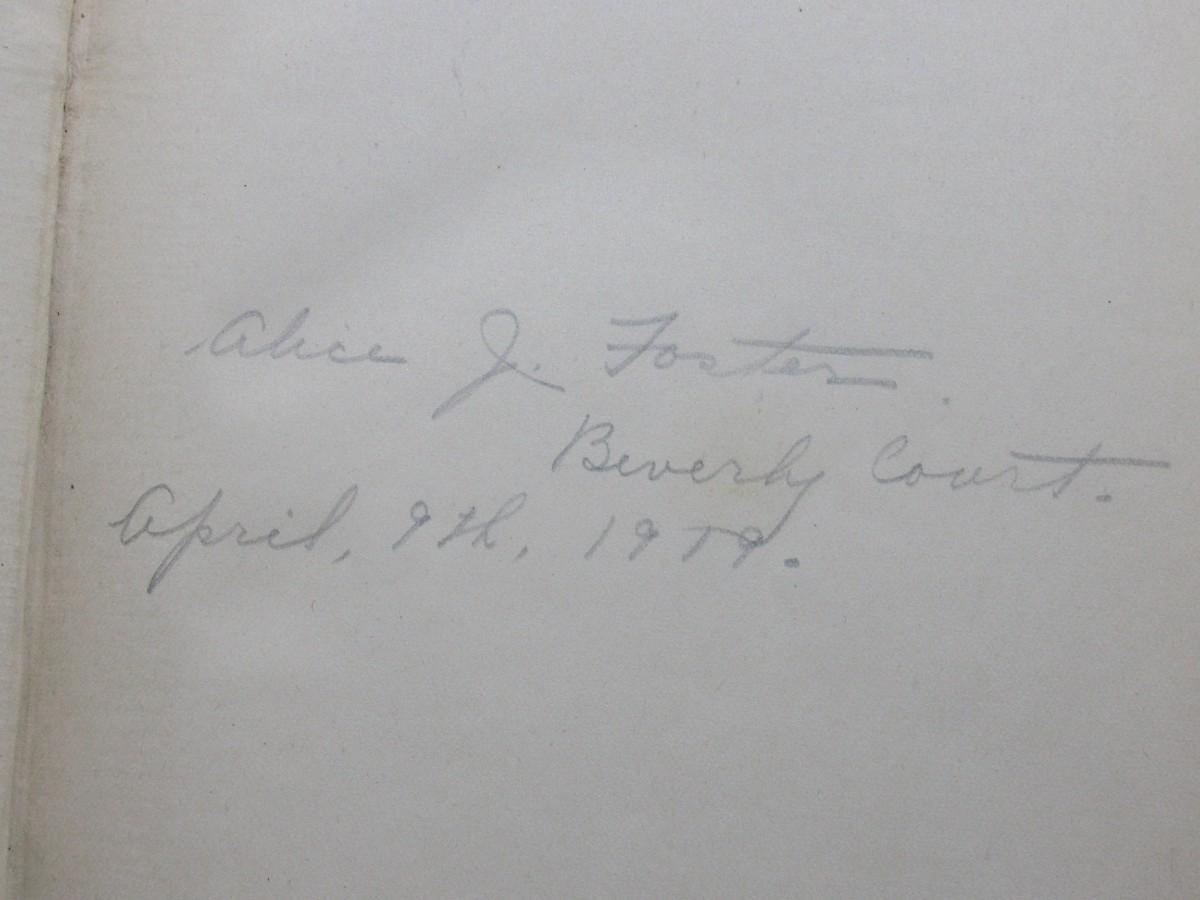 Alice J. Foster.
Beverly Court.
April, 9th, 1919.